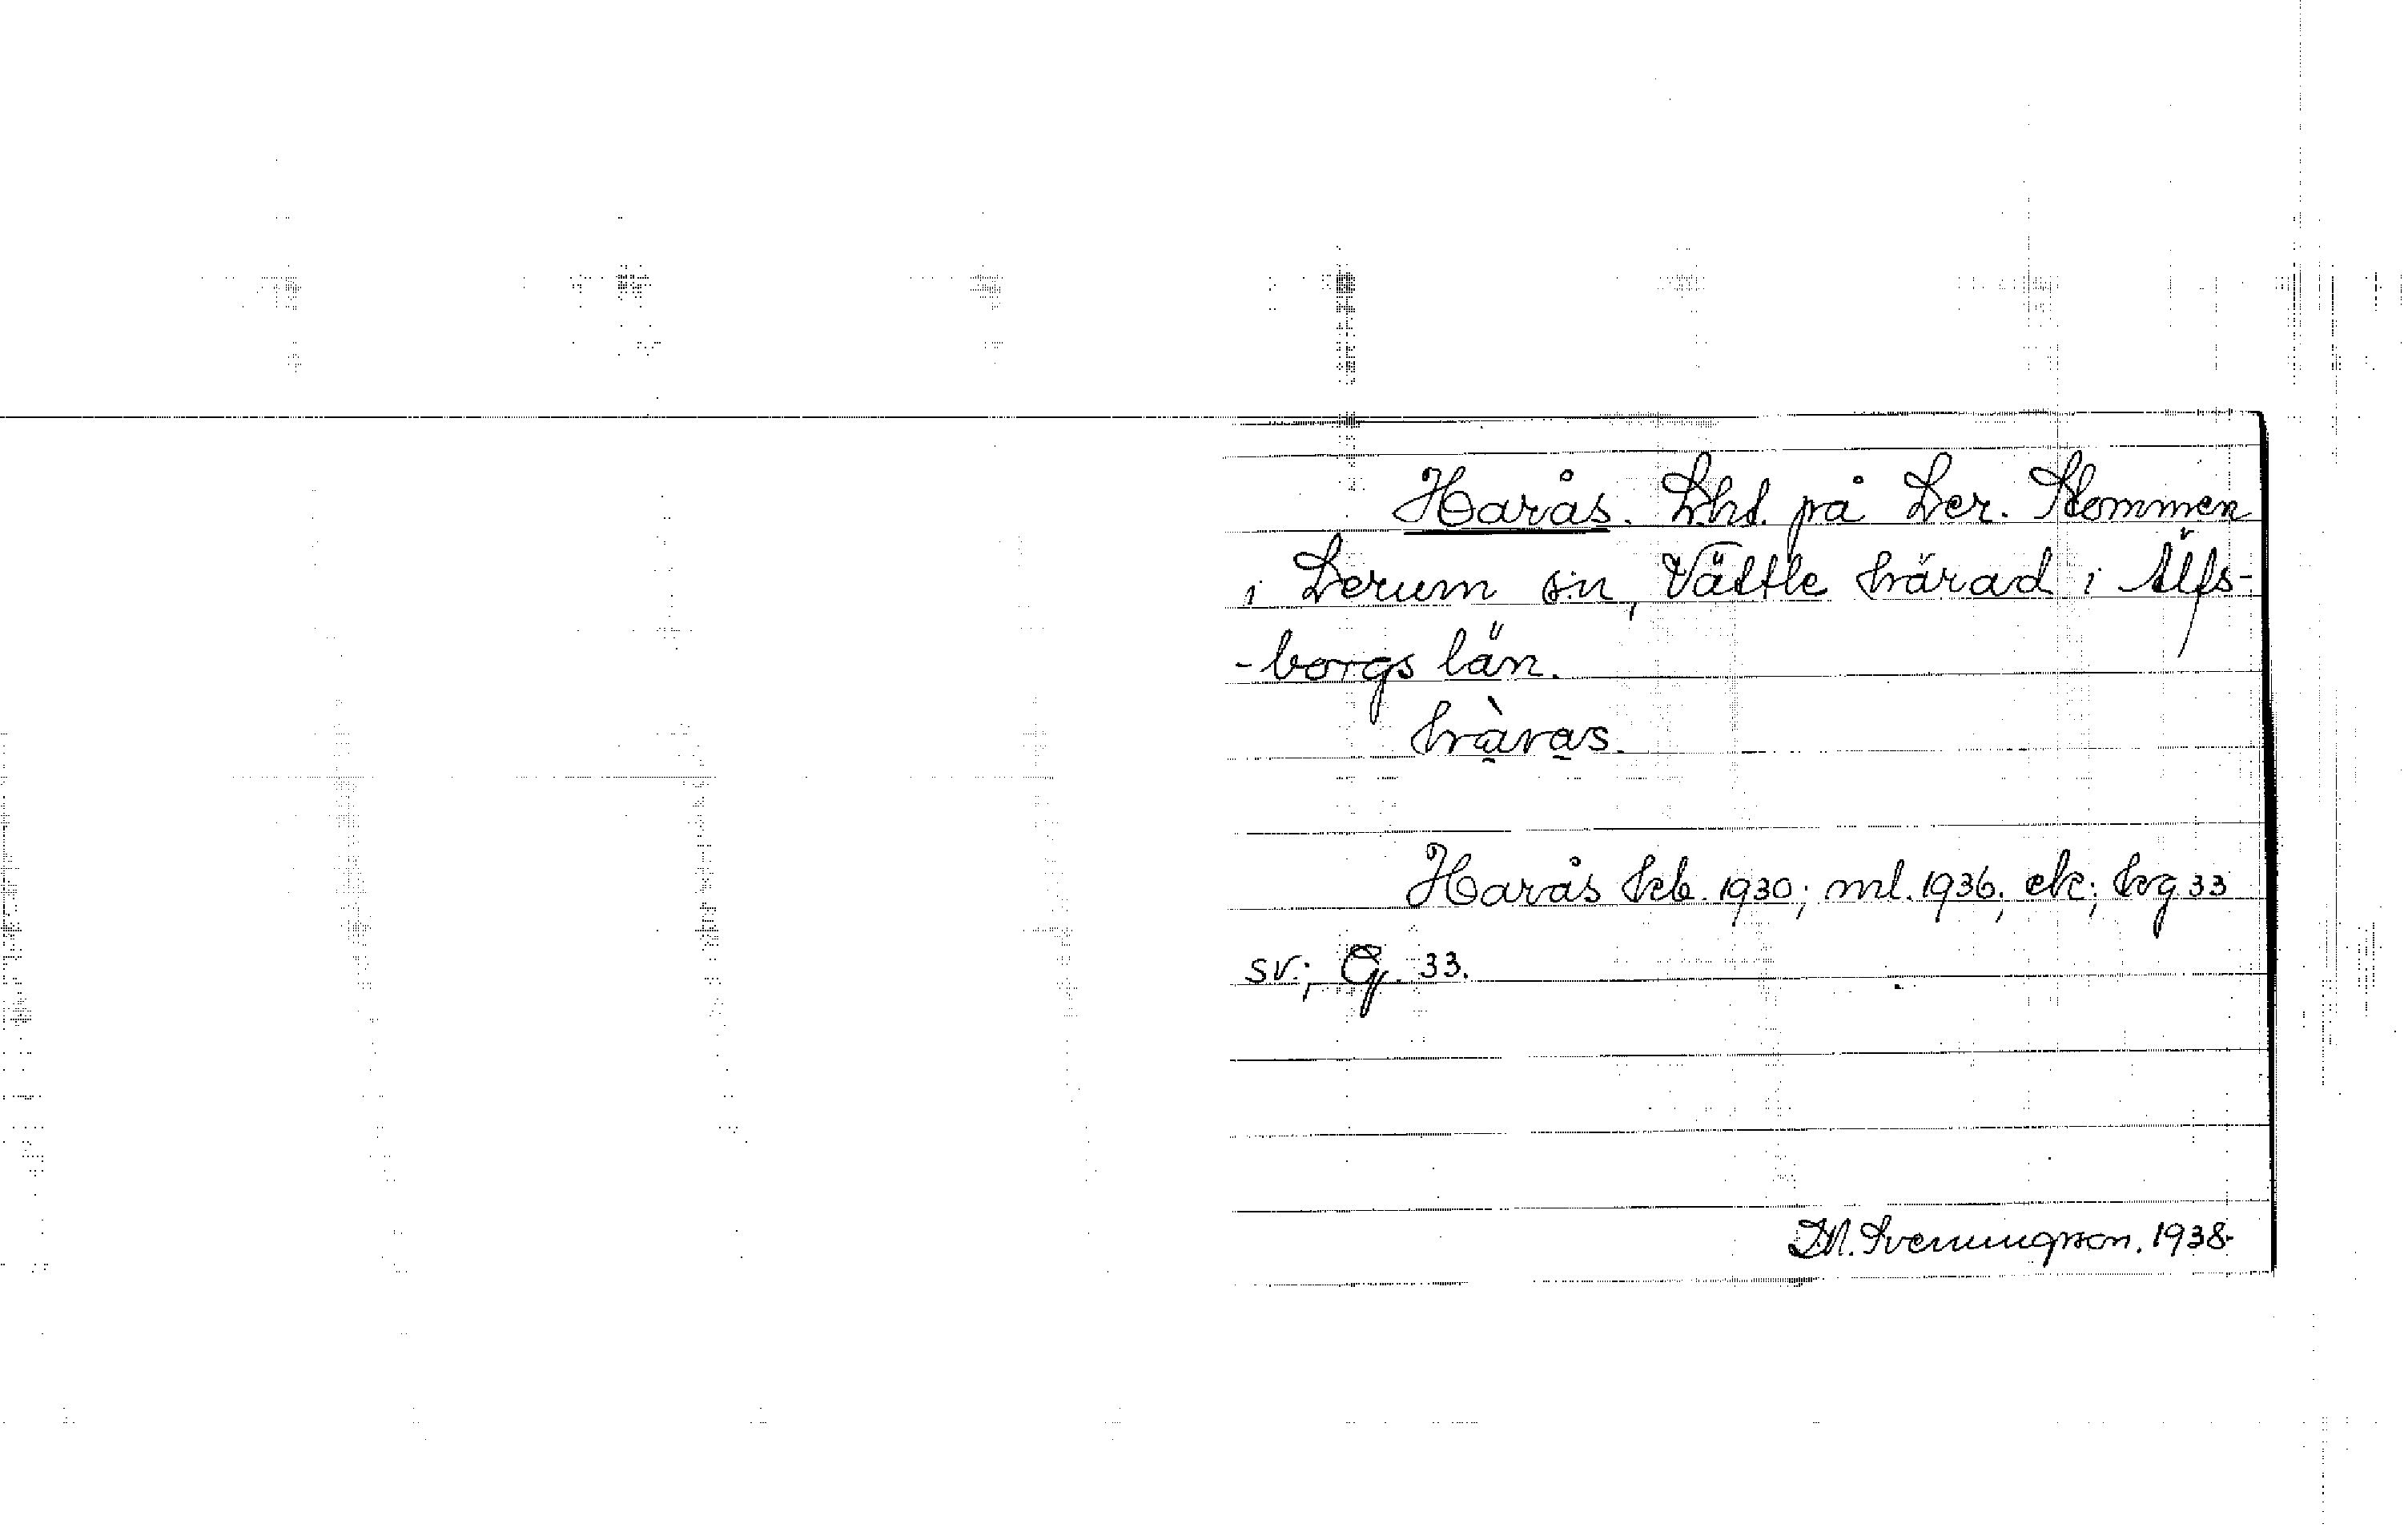 Harås. Lht. på Ler. Stommen
i Lerum sn, Vättle härad i Älfs-
-borgs län.
hàras.
Harås hfb. 1930; ml. 1936; ek; hg 33
sv.; G. 33.
D.A. Svenningson. 1938